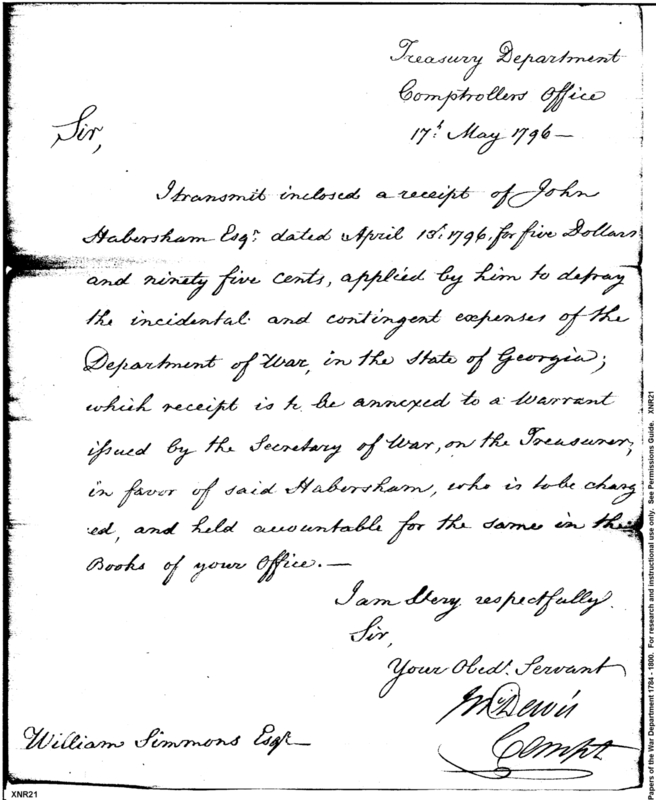 Treasury Department
Comptrollers Office
17th May 1796 —
Sir,
I transmit inclosed a receipt of John
Habersham Esqr. dated April 13th. 1796, for five Dollars
and ninety five cents, applied by him to defray
the incidental and contingent expenses of the
Department of War, in the State of Georgia;
which receipt is to be annexed to a Warrant
issued by the Secretary of War, on the Treasurer,
in favor of said Habersham, who is to be charg
:ed, and held accountable for the same in the
Books of your Office. —
I am Very respectfully.
Sir,
Your Obedt. Servant
Compt
William Simmons Esqr.
XNR21
Papers of the War Department 1784 - 1800. For research and instructional use only. See Permissions Guide. XNR21